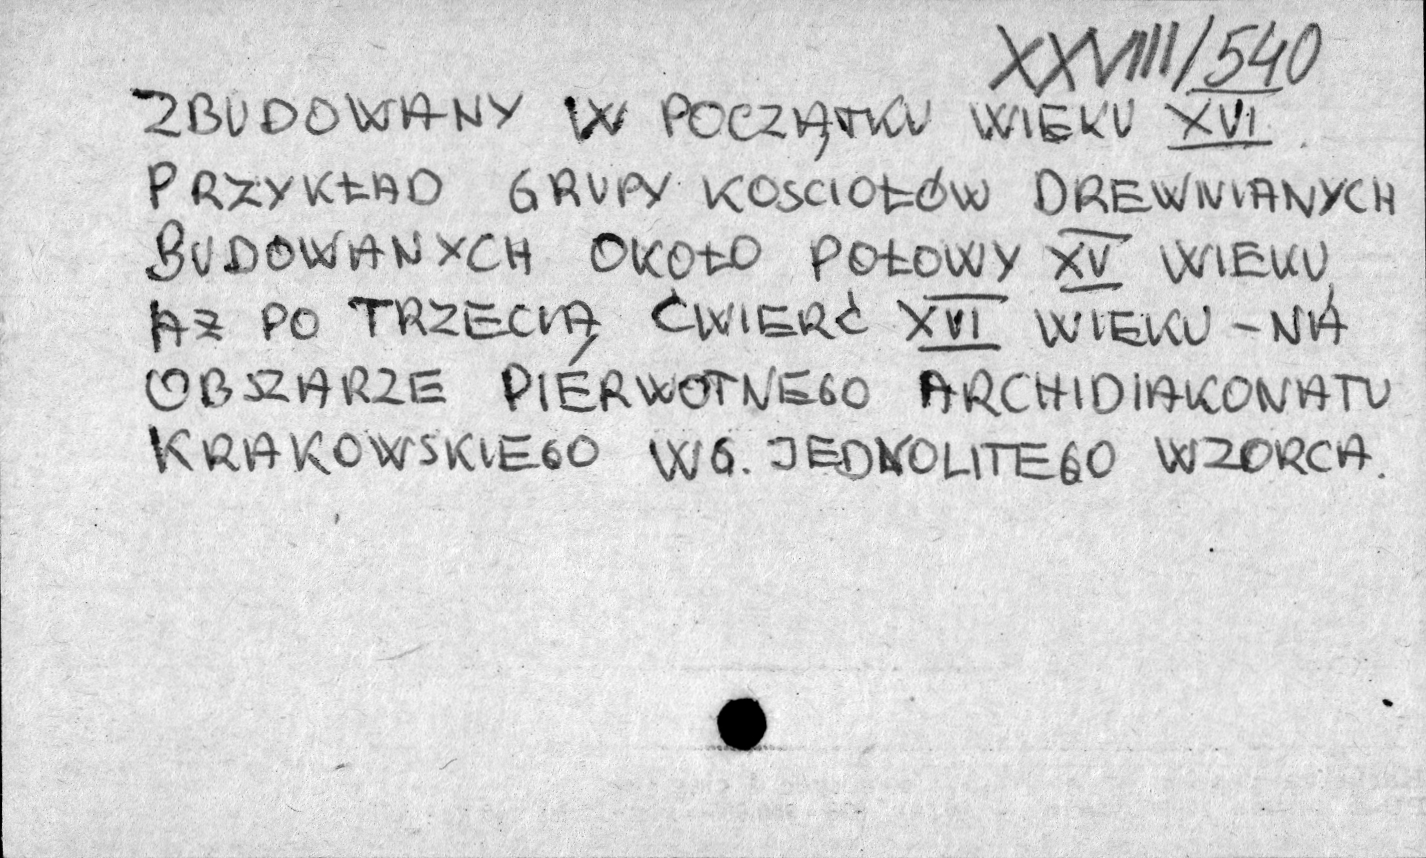 XXVIII/540
ZBUDOWANY W POCZĄTKU WIEKU XVI.
PRZYKŁAD GRUPY KOSCIOŁÓW DREWNIANYCH
BUDOWANYCH OKOŁO POŁOWY XV WIEKU
AŻ PO TRZECIĄ ĆWIERĆ XVI WIEKU - NA
OBSZARZE PIERWOTNEGO ARCHIDIAKONATU
KRAKOWSKIEGO WG. JEDNOLITEGO WZORCA.